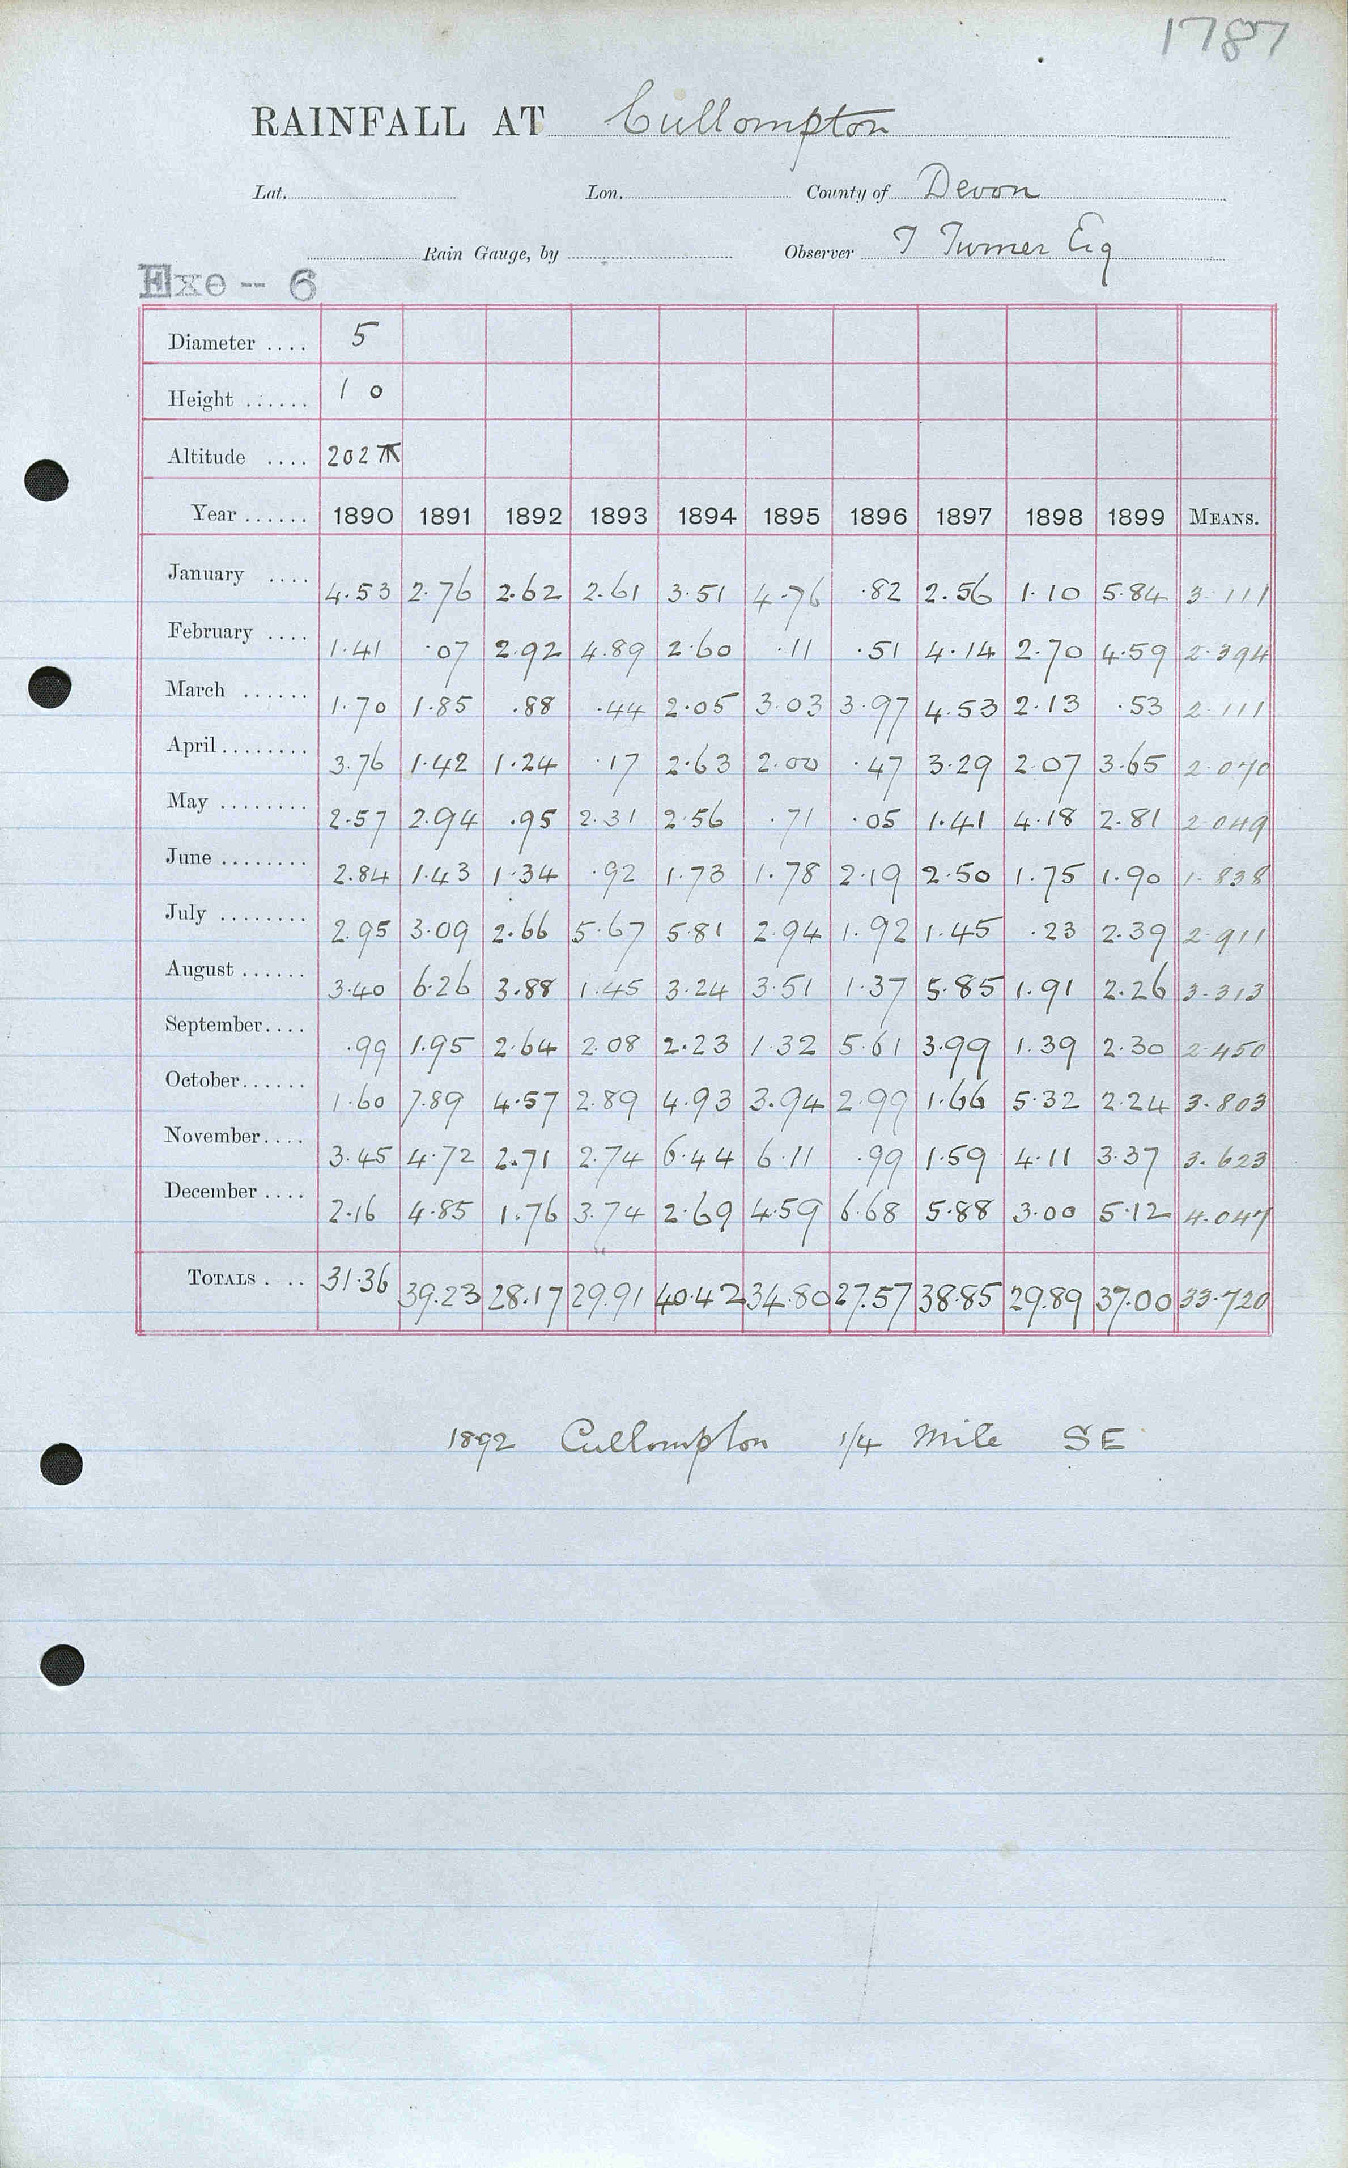 1787
RAINFALL AT Cullompton
Lat. Lon. County of Devon
Rain Gauge, by Observer T Turner Esq
Exe -- 6
Diameter .... 5
Height ...... 1 0
Altitude .... 202
Year ...... 1890 1891 1892 1893 1894 1895 1896 1897 1898 1899 MEANS.
January .... 4.53 2.76 2.62 2.61 3.51 4.76 .82 2.56 1.10 5.84 3.111
February .... 1.41 .07 2.92 4.89 2.60 .11 .51 4.14 2.70 4.59 2.394
March ...... 1.70 1.85 .88 .44 2.05 3.03 3.97 4.53 2.13 .53 2.111
April ........ 3.76 1.42 1.24 .17 2.63 2.00 .47 3.29 2.07 3.65 2.070
May ........ 2.57 2.94 .95 2.31 2.56 .71 .05 1.41 4.18 2.81 2.049
June ........ 2.84 1.43 1.34 .92 1.73 1.78 2.19 2.50 1.75 1.90 1.838
July ........ 2.95 3.09 2.66 5.67 5.81 2.94 1.92 1.45 .23 2.39 2.911
August ...... 3.40 6.26 3.88 1.45 3.24 3.51 1.37 5.85 1.91 2.26 3.313
September.... .99 1.95 2.64 2.08 2.23 1.32 5.61 3.99 1.39 2.30 2.450
October...... 1.60 7.89 4.57 2.89 4.93 3.94 2.99 1.66 5.32 2.24 3.803
November.... 3.45 4.72 2.71 2.74 6.44 6.11 .99 1.59 4.11 3.37 3.623
December .... 2.16 4.85 1.76 3.74 2.69 4.59 6.68 5.88 3.00 5.12 4.047
TOTALS . .. 31.36 39.23 28.17 29.91 40.42 34.80 27.57 38.85 29.89 37.00 33.720
1892 Cullompton 1/4 Mile SE